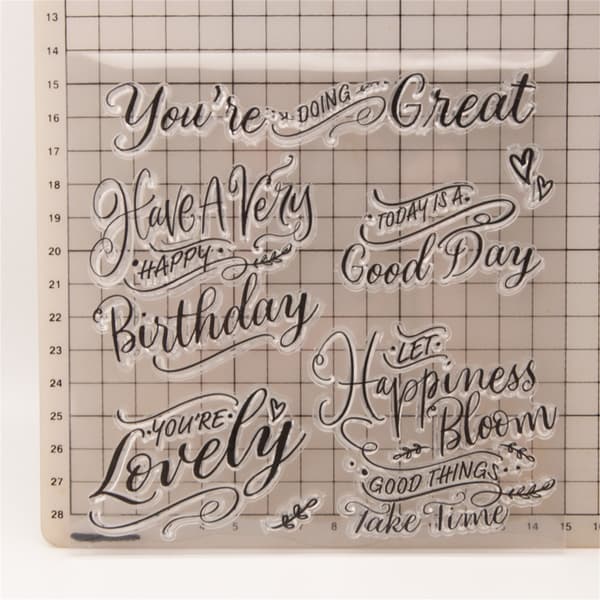 You're DOING Great
Have A Very
HAPPY
Birthday
TODAY IS A
Good Day
YOU'RE
Lovely
LET
Happiness
Bloom
GOOD THINGS
Take Time
13
14
15
16
17
18
19
20
21
22
23
24
25
26
27
28
4 5 8 13 14 15 16